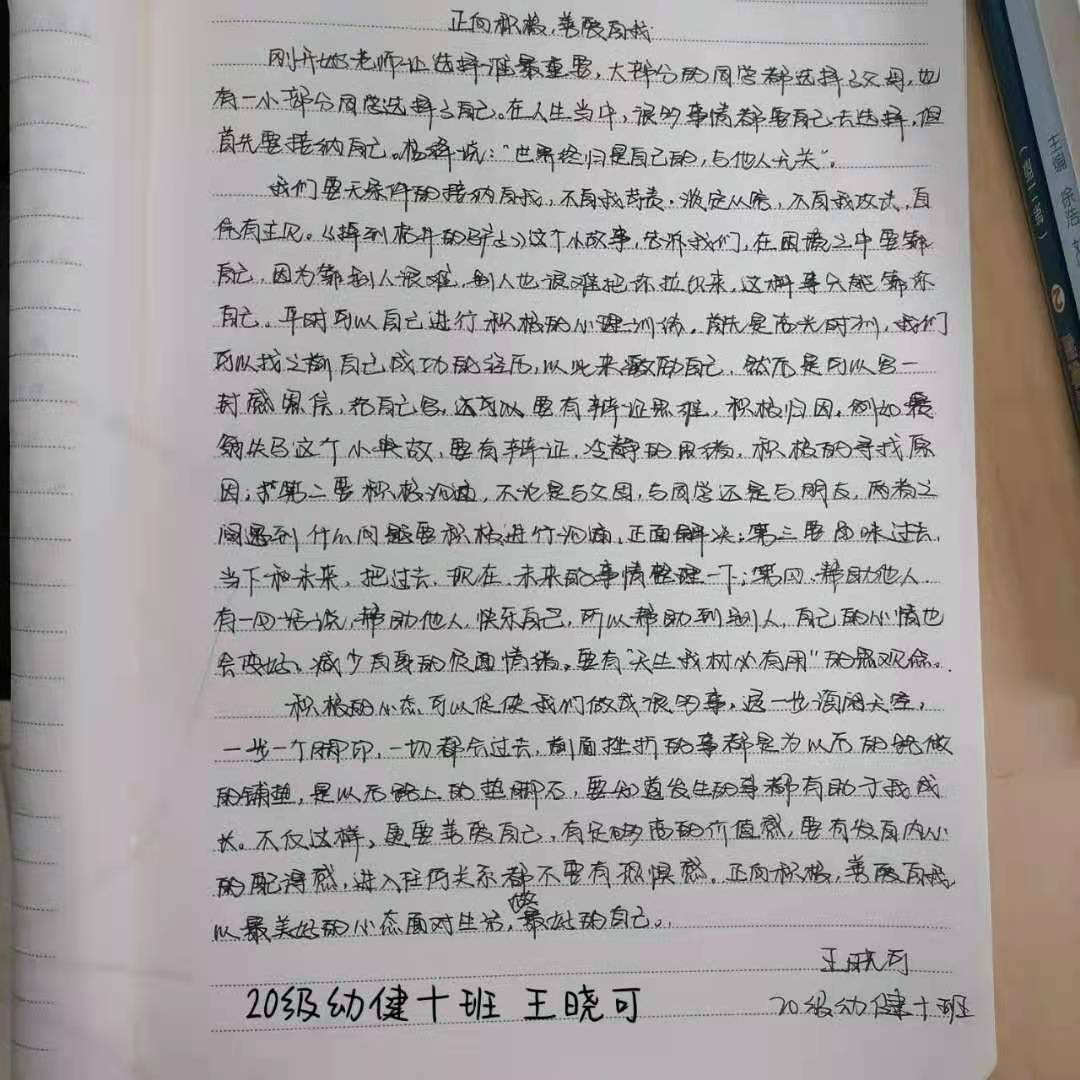 正向积极,善爱自我
刚开始老师让选择谁最重要,大部分的同学都选择了父母,也
有一小部分同学选择了自己。在人生当中,很多事情都要自己去选择,但
首先要接纳自己。杨绛说:“世界终归是自己的,与他人无关”。
我们要无条件的接纳自我,不自我苛责,淡定从容,不自我攻击,自
信有主见。《掉到枯井的驴》这个小故事,告诉我们,在困境之中要靠
自己,因为靠别人很难,别人也很难把你拉出来,这种事只能靠你
自己。平时可以自己进行积极的心理训练。首先是高光时刻,我们
可以找之前自己成功的经历,以此来激励自己,然后是可以写一
封感恩信,给自己写,还可以要有辩证思维,积极归因,例如塞
翁失马这个小典故,要有辩证,冷静的思绪,积极的寻找原
因;第二要积极沟通,不论是与父母,与同学还是与朋友,两者之
间遇到什么问题要积极进行沟通,正面解决;第三要回味过去,
当下和未来,把过去,现在,未来的事情整理一下;第四,帮助他人,
有一句话说,帮助他人,快乐自己,所以帮助到别人,自己的心情也
会变好。减少自身的负面情绪。要有“天生我材必有用”的观念。
积极的心态可以促使我们做成很多事,退一步海阔天空,
一步一个脚印,一切都会过去,前面挫折的事都是为以后的路做
的铺垫,是以后路上的垫脚石,要知道发生的事都有助于我成
长。不仅这样,更要善爱自己,有足够高的价值感,要有发自内心
的配得感,进入任何关系都不要有恐惧感。正向积极,善爱自我,
以最美好的心态面对生活,做最好的自己。
王晓可
20级幼健十班 王晓可
20级幼健十班
主编 徐浩